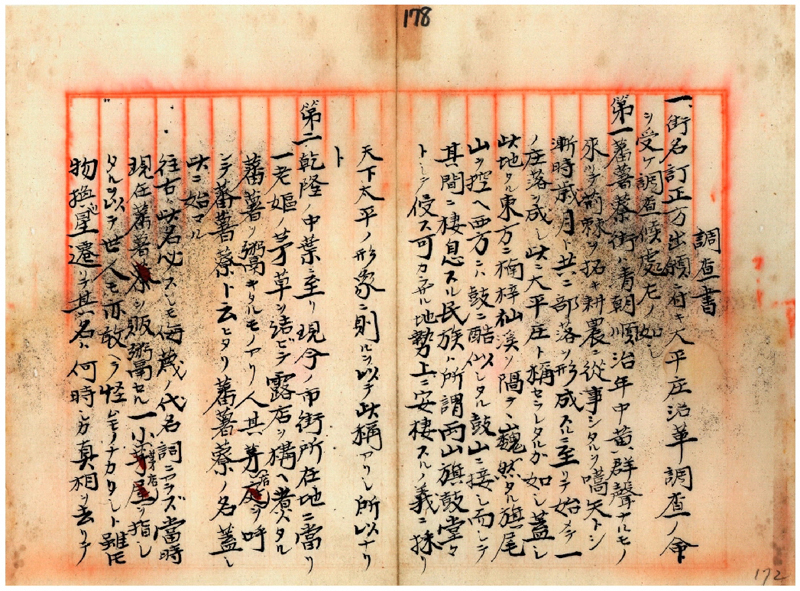 178
調查書
一、街名訂正方出願ニ付キ大平庄沿革調查ノ命
ヲ受ケ調查候處左ノ如シ
第一蕃薯藔街ハ清朝順治年中黄群聲ナルモノ
來リテ荊棘ヲ拓キ耕農ニ從事シタルヲ嚆矢トシ
漸時歲月ト共ニ部落ヲ形成スルニ至リテ始メテ一
ノ庄落ヲ成シ此ニ大平庄ト稱セラレタルガ如シ蓋シ
此地タル東方ニ楠梓仙溪ヲ隔テヽ巍然タル旗尾
山ヲ控ヘ西方ニハ鼓ニ酷似シタル鼓山ニ接シ而シテ
其間ニ棲息スル民族ハ所謂両山旗鼓堂々
トシテ侵ス可カラザル地勢上ニ安棲スルノ義ニ採リ
天下太平ノ形象ニ則ルヲ以テ此稱アリシ所以ナリ
ト
第二乾隆ノ中葉ニ至リ現今ノ市街所在地ニ當リ
一老嫗ノ茅草ヲ結ビテ露店ヲ構ヘ煮タル
蕃薯ヲ鬻キタルモノアリ人其茅店ヲ呼
ンテ蕃薯藔ト云ヒタリ蕃薯藔ノ名蓋シ
此ニ始マル
往古ハ此名必ズシモ海蔑ノ代名詞ニアラズ當時
現在蕃薯ヲ販鬻セル一小茅屋ヲ指シ
タルヲ以テ世人モ亦敢ヘテ怪ムモノナカリシト雖モ
物換星遷リテ其名ハ何時シカ真相ヲ去リテ
172